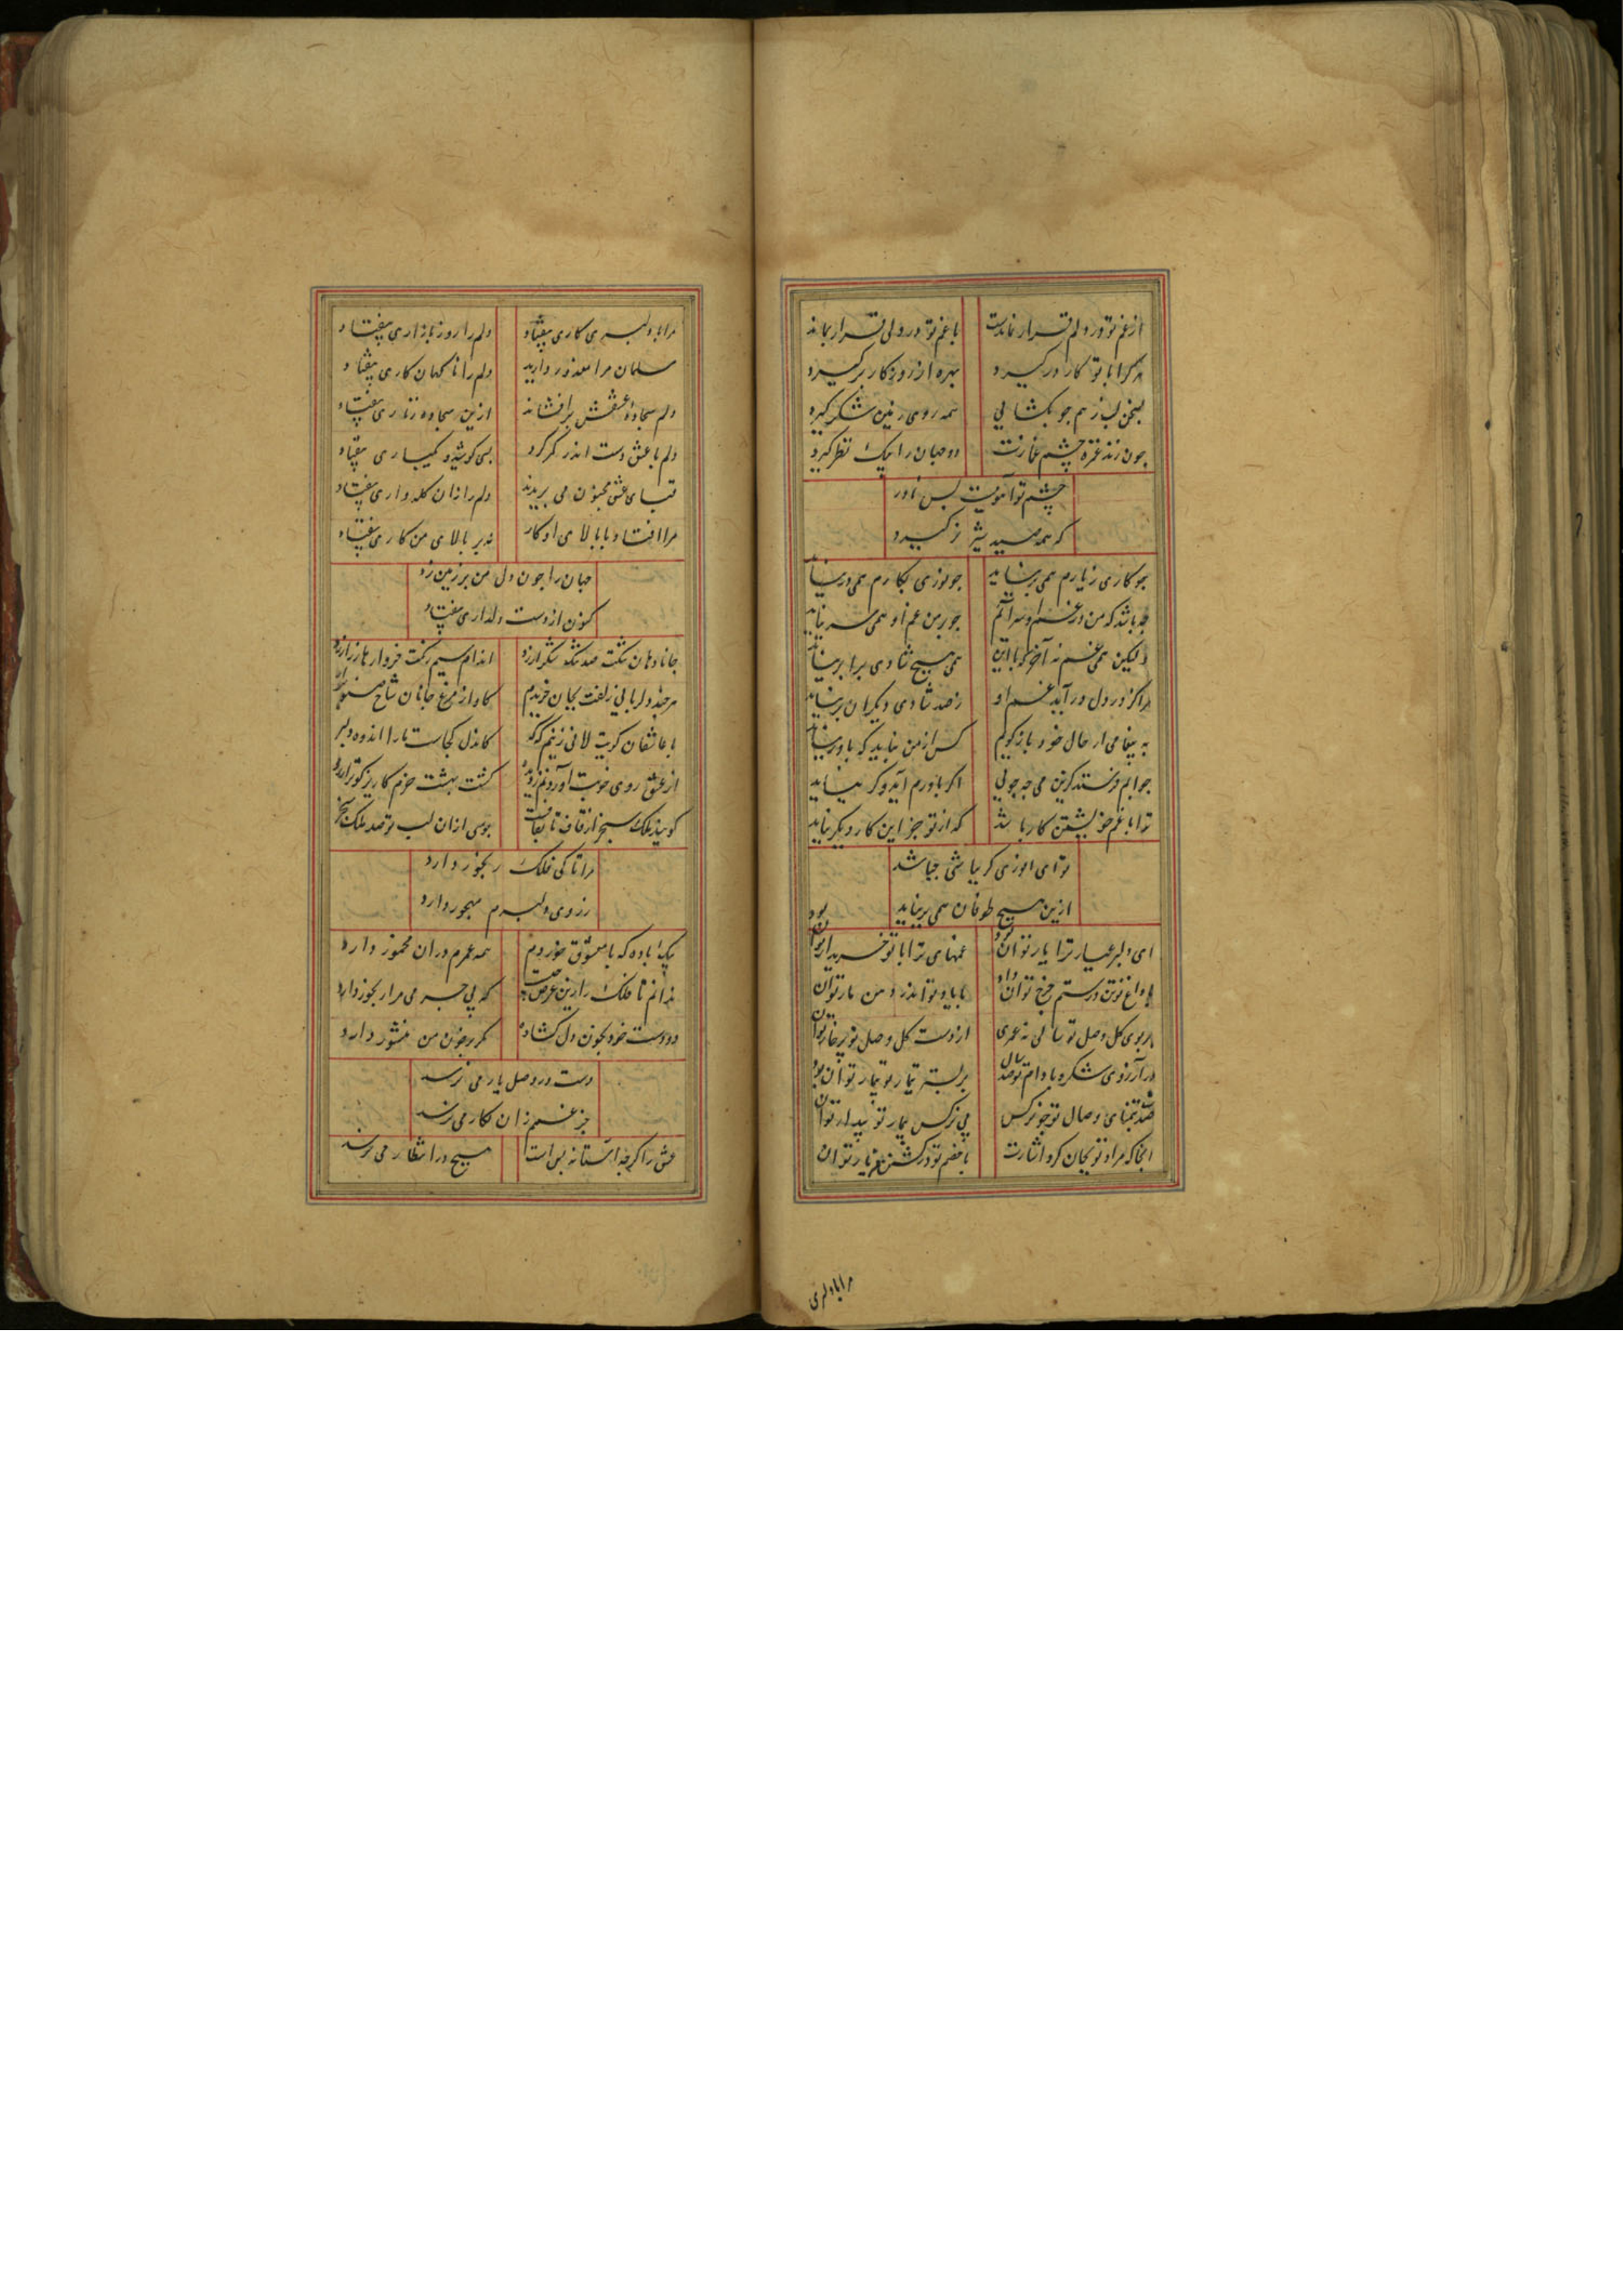 از غم تو در دلم قرار نماندست با غم تو در دلی قرار نماند
هر کرا با تو کار در کیرد بهره از روزکار بر کیرد
بسخن لب ز هم جو بکشایی همه روی زمین شکر کیرد
چون زند غمزه چشم غمازت دو جهان را بیک نظر کیرد
چشم تو آهویست بس نادر
که همه صید شیر نر کیرد
جو کاری ز یارم همی برنیاید جو نوری بکارم همی درنیاید
چه باشد که من در غم او سرآیم جو بر من غم او همی سر نیاید
ولیکن همی غم نه آخر کوبا این همی هیچ شادی برابر نیاید
هر آکز در دل درآید غم او ز صد شادی دیکران بر نیاید
به پیغامی از حال خود باز کویم کس از من نیاید که باور نیاید
جوابم فرستد کزین می جه جویی اکر باورم آید و کر نیاید
ترا با غم خویشتن کار باشد که از تو جز این کار دیکر نیاید
تو ای انوری کر بباشی جباشد
ازین هیچ طوفان همی برنیاید
ای دلبر عیار ترا یار توان بود غمهای ترا با تو خریدار توان بود
با داغ تو تن در ستم چرخ توان داد با یاد تو اندر دهن مار توان بود
بر بوی کل وصل تو سالی نه عمری از دست کل وصل تو پر خار توان بود
در آرزوی شکر و بادام تو صد سال بر بستر تیمار تو بیمار توان بود
صد شب بتمنای وصال تو جو نرکس بی نرکس بیمار تو بیدار توان بود
آنجا که مراد تو بجان کرد اشارت با خصم تو در کشتن خود یار توان
مرا با دلبری
مرا با دلبری کاری بیفتاد دلم را روز بازاری بیفتاد
مسلمانان مرا معذور دارید دلم را ناکهان کاری بیفتاد
دلم سجادهٔ عشقش برافشاند ازین سجاده زناری بیفتاد
دلم با عشق دست اندر کمر کرد بسی کوشید و یکباری بیفتاد
قبای عشق مجنون می بریدند دلم را زان کله واری بیفتاد
مرا افتاد با بالای او کار نه بر بالای من کاری بیفتاد
جهان را چون دل من بر زمین زد
کنون از دست دلداری بیفتاد
جانا دهان تنکت صد تنک شکر ارزد اندام سیم رنکت خروارها زر ارزد
هرچند دلربایی زلفت بجان خریدم
با عاشقان کویت لافی زنیم کوکو کاندل کجاست ما را اندوه دلبر
از عشق روی خوبت آوردم کشت بهشت خرم کاریز کوثر ارزد
کویند ملک سنجر از قاف تا بقافست بوسی از آن لب تو صد ملک سنجر
مرا تا کی فلک رنجور دارد
ز روی دلبرم مهجور دارد
بیک باده که با معشوق خوردم همه عمرم در آن مخمور دارد
ندانم تا فلک را زین غرض چیست که بی جرمی مرا رنجور دارد
دو دست خود بخون دل کشادست مکر بر خون من منشور دارد
دست در وصل یار می نرسد
جز غم زان نکار می نرسد
عشق را کر چه آستانه بس است هیچ در انتظار می نرسد